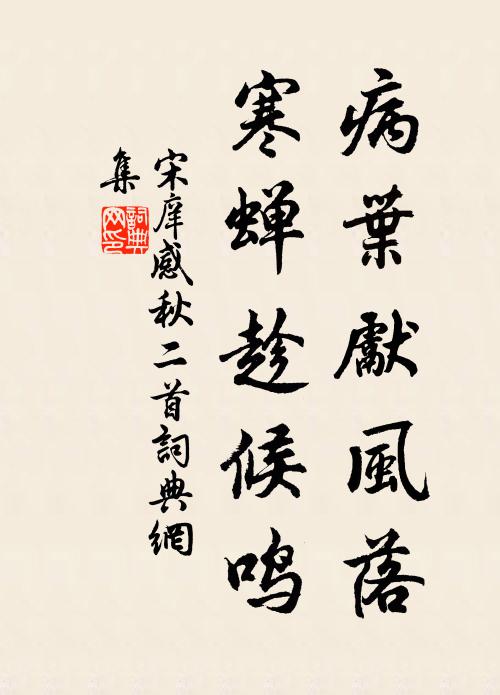 病葉獻風落
寒蝉趁候鸣
宋庠感秋二首詞典網
集
詞典
网印